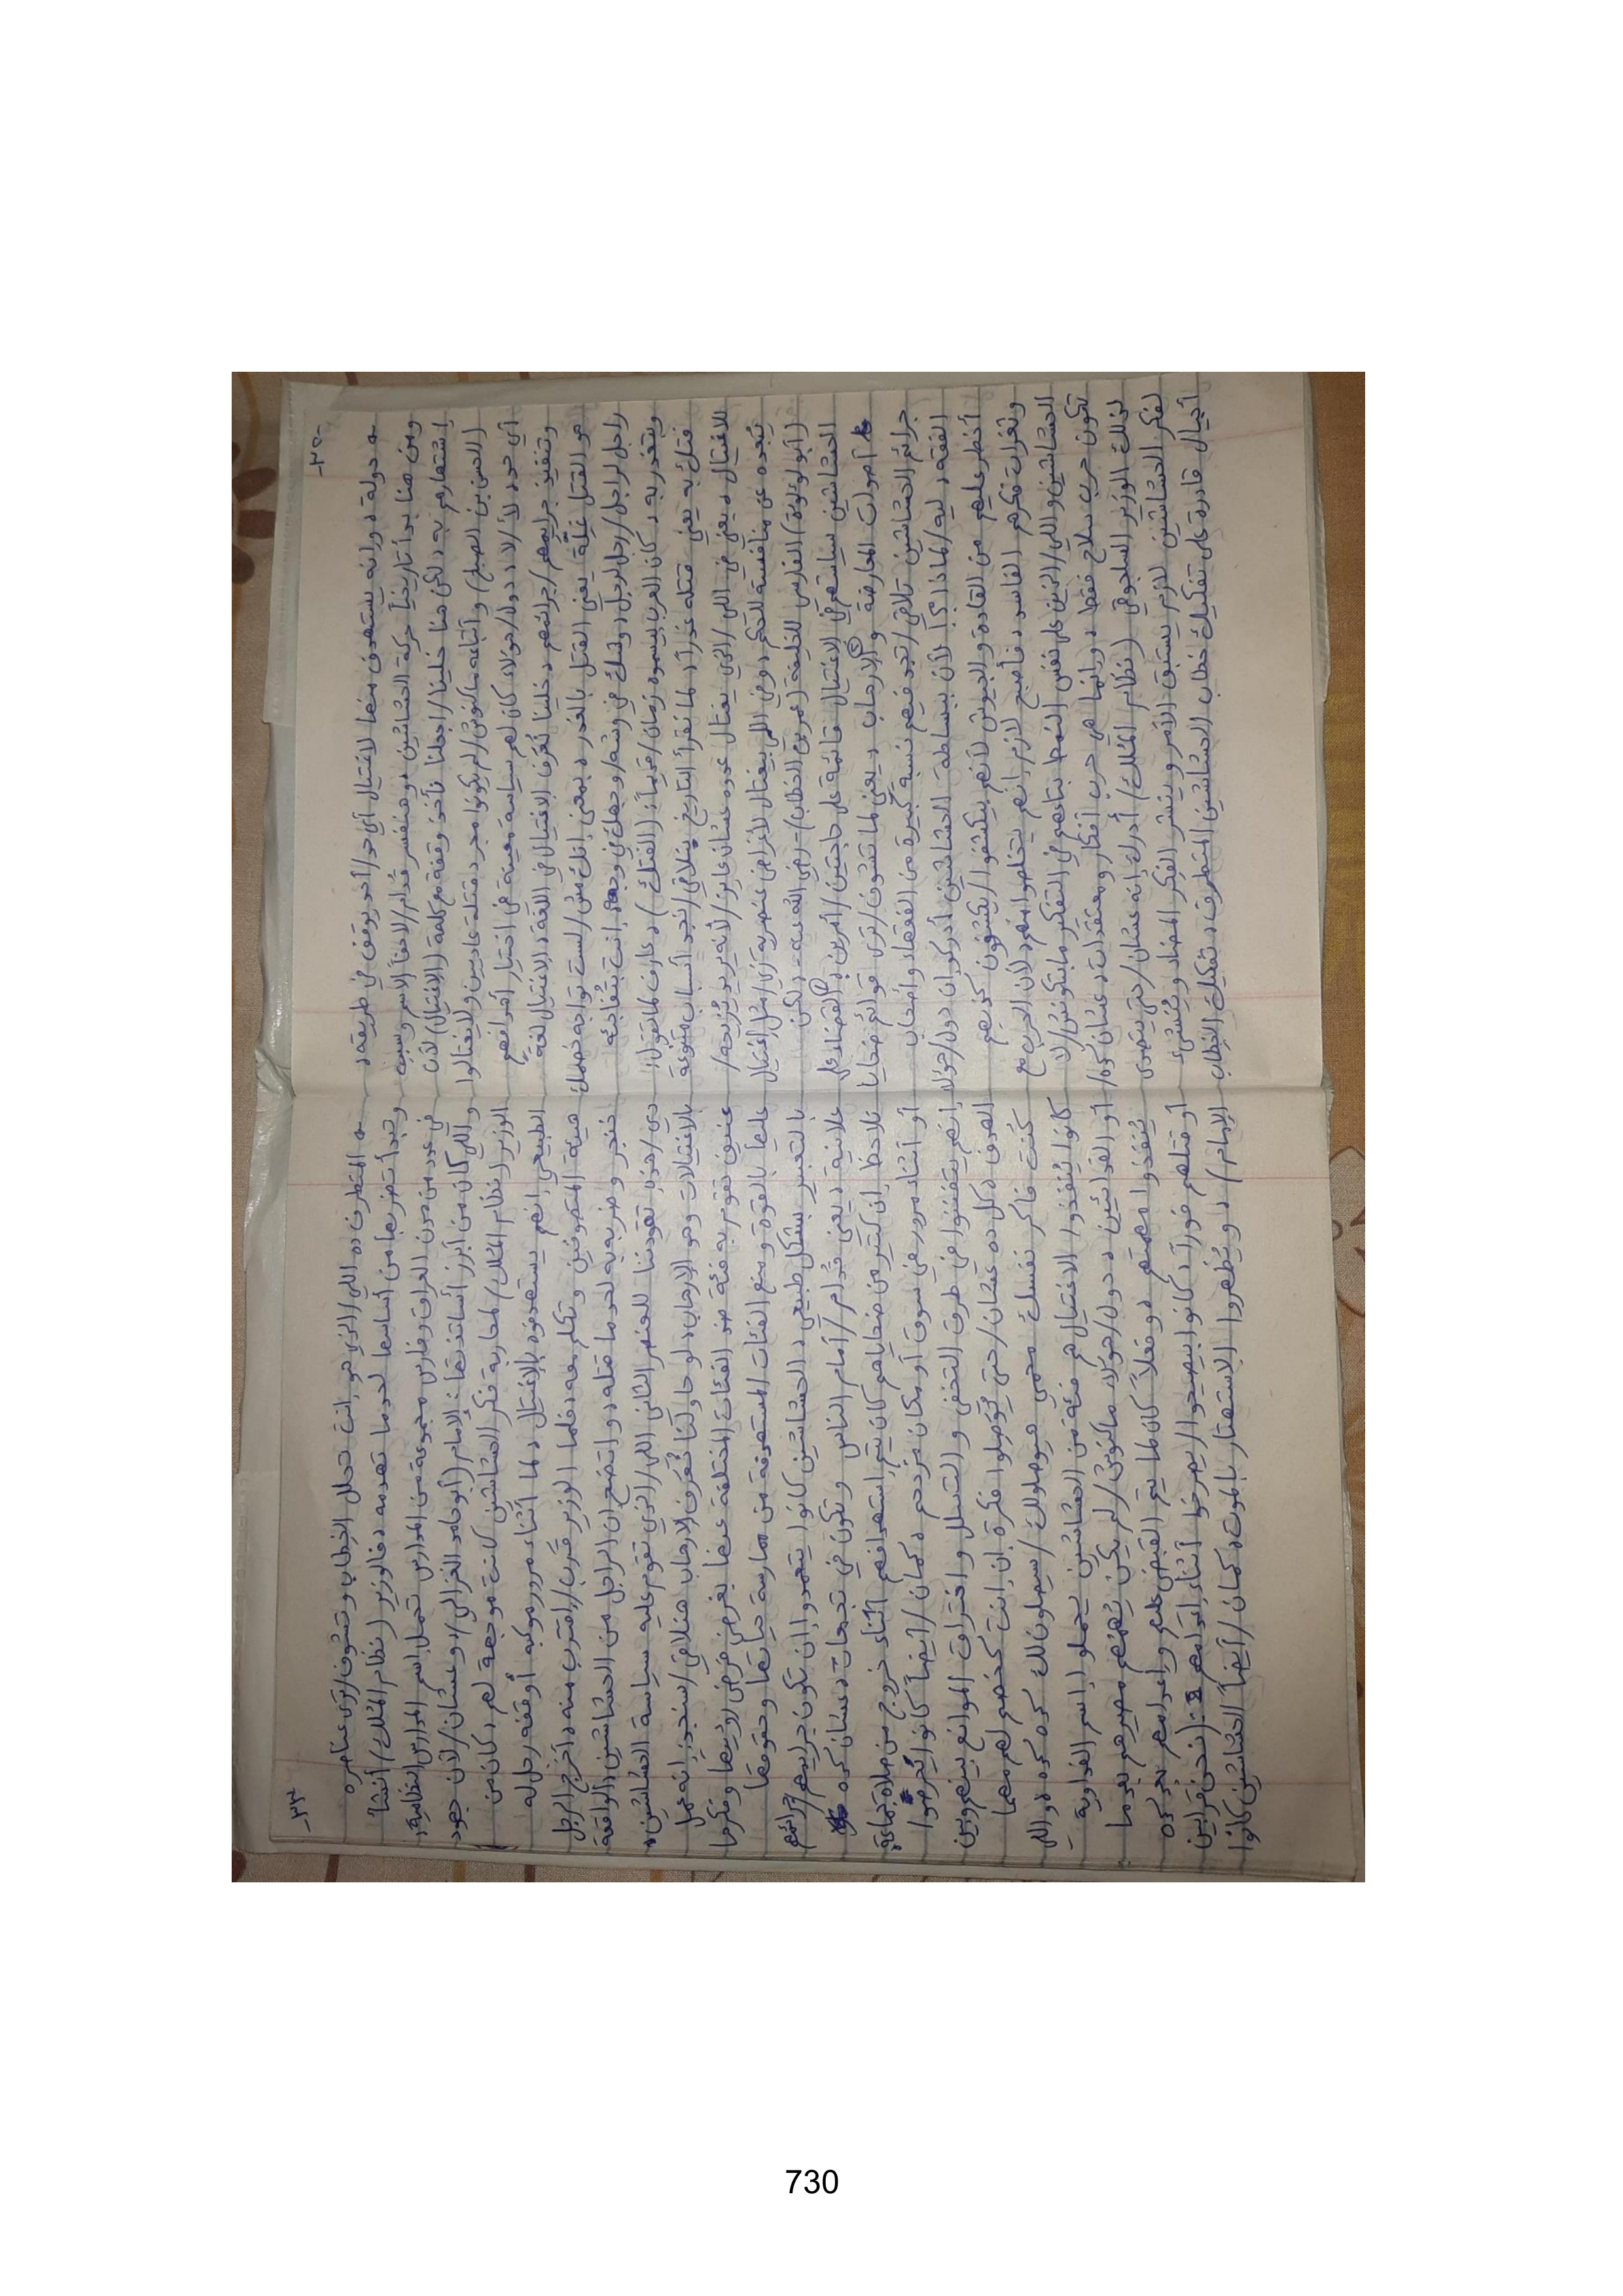 -٣٢-
ه دولة، وإنه يستهدف منها لاغتيال أي حد/أحد يوقف في طريقه،
ومن هنا بدأ تاريخياً حركة الحشاشين، وهنفسر قدام/لاحقاً الاسم وسبب
إشتهارهم به، لكن هنا خلينا/اجعلنا نأخذ وقفة مع كلمة (الاغتيال) لأن
(الحسن بن الصباح) وأتباعه ماكنوش/لم يكونوا مجرد قتلة عاديين ولا يغتالوا
أي حد، لأ/لا، دول/هؤلاء كان لهم سياسة معينة في اختيار أهدافهم
وتنفيذ جرايمهم/جرائمهم، خلينا نُعَرِّف الاغتيال في اللغة، الاغتيال لغةً
هو القتل غِيلَة يعني القتل بالغدر، بمعنى إنك مش/لست تواجه خصمك
راجل لراجل/رجل لرجل، وشك في وشه/وجهك في وجهه، إنت بتفاجئه
وبتغدر به، كان العرب بيسموه زمان/قديماً: (الفتك)، عارف لما تقول:
فتك به يعني قتله غدراً، لما نقرأ التاريخ بنلاقي/نجد أسباب متنوعة
للاغتيال، يعني في اللي/الذي يغتال عدوه عشان عايز/لأنه يريد يُزيحه/
يُبعده عن منافسته للحكم، وفي اللي بيغتال لأغراض عنصرية زي/مثل إغتيال
(أبو لؤلؤة) الفارسي للخليفة (عمر بن الخطاب) - رضي الله عنه - لكن
الحشاشين سياستهم في الاغتيال قائمة على حاجتين/أمرين: ① القضاء على
أصوات المعارضة و② الإرهاب، يعني لما تشوف/ترى قوائم ضحايا
جرائم الحشاشين تلاقي/تجد فيهم نسبة كبيرة من الفقهاء وأصحاب
الفقه، ليه/لماذا؟! لأن ببساطة الحشاشين أدركوا إن دول/هؤلاء
أخطر عليهم من القادة والجيوش لأنهم بيكشفوا/يكشفون كذبهم
وثغرات فكرهم الفاسد، فأصبح لازم إنهم يتخلصوا منهم، لأن الحرب مع
الحشاشين واللي/الذين على نفس النمط بتاعهم في التفكير مابتكونش/لا
تكون حرب سلاح فقط، وإنما هي حرب أفكار ومعتقدات، عشان كده/
لذلك الوزير السلجوقي (نظام المُلك) أدرك إنه عشان/حتى يتصدى
لفكر الحشاشين لازم يستبق الأمر وينشر الفكر المضاد ويُنشيء
أجيال قادرة على تفكيك خطاب الحشاشين المتطرف، تفكيك الخطاب
-٣٣-
ه المتطرف ده اللي/الذي هو إنت تحلل الخطاب وتشوف/ترى عناصره
وتبدأ تضربها من أساسها لحد ما تهدمه، فالوزير (نظام المُلك) أنشأ
في عدد من مدن العراق وفارس مجموعة من المدارس تحمل إسم المدارس النظامية،
واللي كان من أبرز أساتذتها: الإمام (أبو حامد الغزالي)، وعشان/لأن جهود
الوزير (نظام المُلك) لمحاربة فكر الحشاشين كانت موجعة لهم، كان من
الطبيعي إنهم يستهدفوه بالإغتيال، لما أثناء مرور موكبه أوقفه رجل له
هيئة المتصوفين وتكلم معه، فلما الوزير قَرَّب/اقترب منه، أخرج الرجل
خنجر وضربه به لحد ما قتله، واتضح إن الراجل من الحشاشين، الواقعة
دي/هذه، تقودننا للعنصر الثاني اللي/الذي تقوم عليه سياسة الحشاشين،
بالاغتيالات وهو الإرهاب، لو حاولنا نُعَرِّف الإرهاب هنلاقي/سنجد إنه عمل
عنيف تقوم به فئة ضد الفئات المختلفة عنها بغرض فرض رؤيتها وفكرها
عليها بالقوة ومنع الفئات المستهدفة من ممارسة حياتها وحقوقها
بالتعبير بشكل طبيعي، الحشاشين كانوا يتعمدوا إن تكون جرايمهم/جرائمهم
علانية، يعني قدام/أمام الناس وتكون في تجمعات، عشان كده
تلاحظ إن كتير من ضحاياهم كان يتم إستهدافهم أثناء خروج من صلاة جماعة،
أو أثناء مرور في سوق أو مكان مزدحم، كمان/أيضاً كانوا يحرصوا
إنهم يتفننوا في طرق التخفي والتسلل واختراق الموانع بينهم وبين
الهدف، كل ده عشان/حتى يُوَصِلوا فكرة إن إنت كخصم لهم مهما
كُنت فاكر نفسك محمي هيوصلولك/سيصلون لك، كده كده، واللي
كانوا يُنفذوا الاغتيال هم فئة من الحشاشين يحملوا إسم الفداوية
أو الفدائيين، دول/هؤلاء ماكنوش/لم يكن يُهمهم مصيرهم بعد ما
يُنفذوا مهمتهم، وفعلاً كان لما يتم القبض عليهم وإعدامهم بعد كده
أو قتلهم فوراً، كانوا بيصيحوا/يصرخوا أثناء إعدامهم: (نحن قرابين
الإمام)، ويُظهروا الاستهتار بالموت، كمان/أيضاً الحشاشين كانوا
730